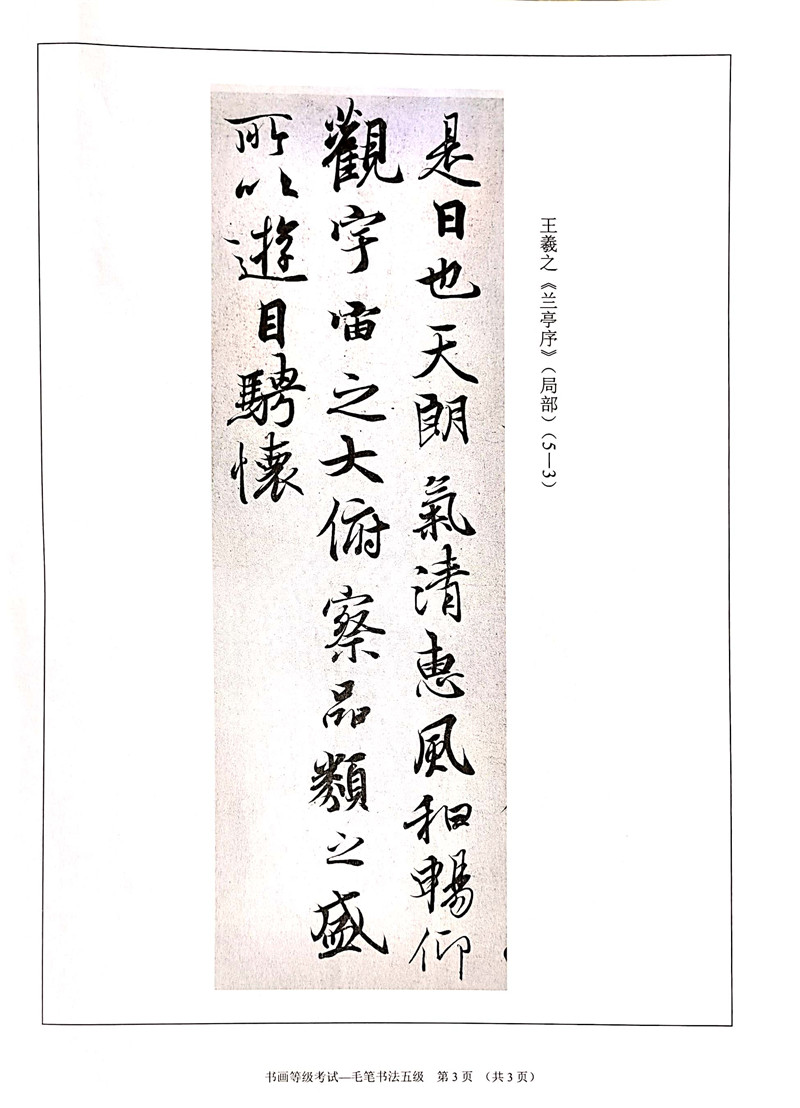 王羲之《兰亭序》（局部）（5—3）
是日也天朗氣清惠風和暢仰
觀宇宙之大俯察品類之盛
所以遊目騁懷
书画等级考试—毛笔书法五级 第3页 （共3页）